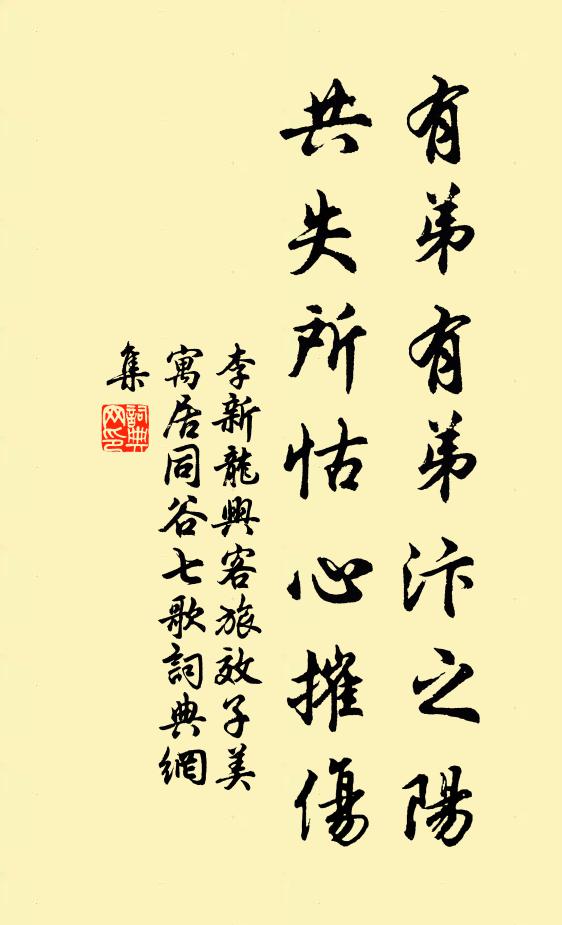 有弟有弟汴之陽
共失所怙心摧傷
李新龍興客旅效子美
寓居同谷七歌詞典網
集
詞典網印